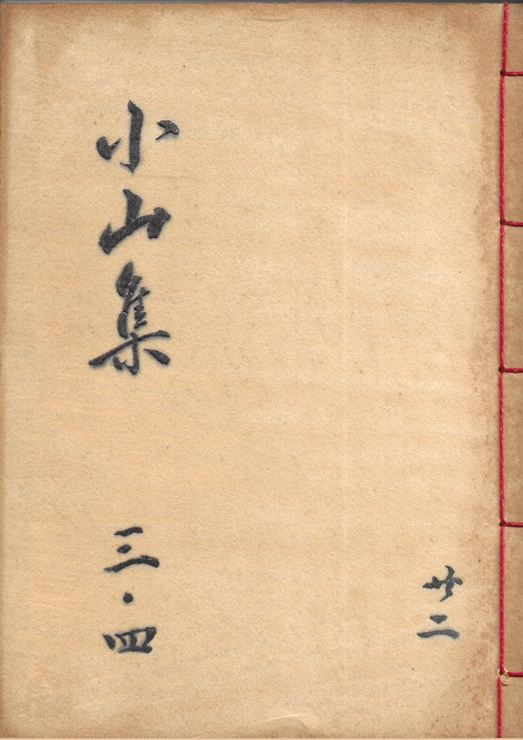 小山集 三·四
共二